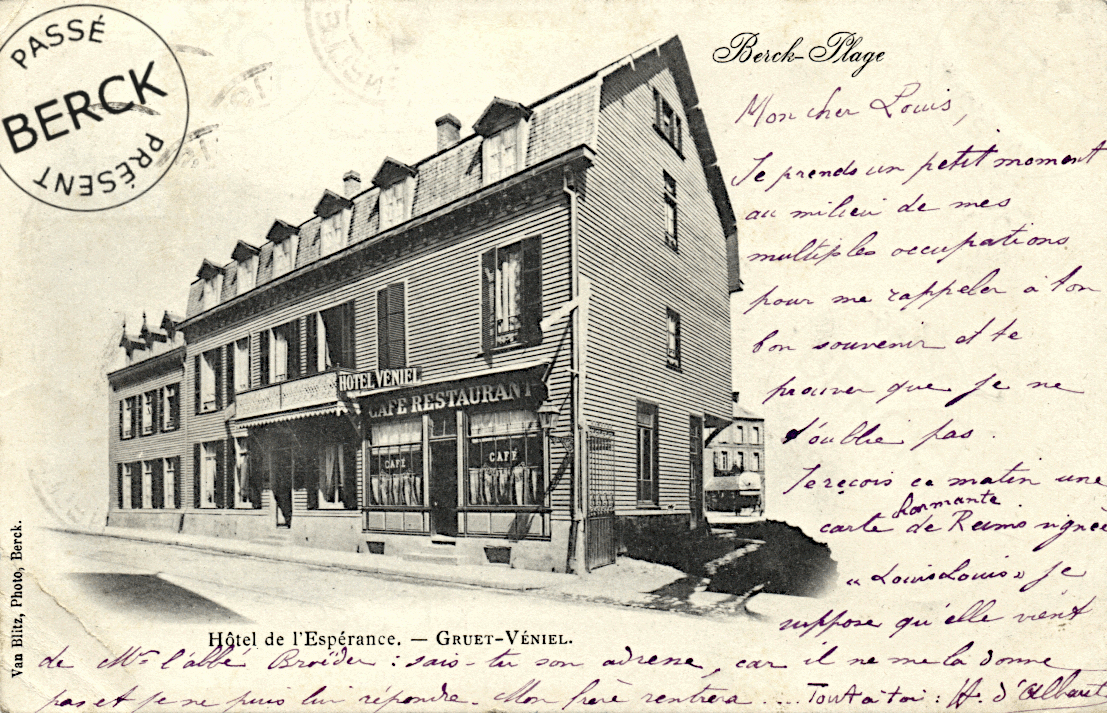 PASSÉ
BERCK
PRÉSENT
Berck-Plage
Mon cher Louis,
Je prends un petit moment
au milieu de mes
multiples occupations
pour me rappeler à ton
bon souvenir et te
prouver que je ne
t'oublie pas.
Je reçois ce matin une
charmante
carte de Reims signée
« LouisLouis » je
suppose qu'elle vient
de Mr l'abbé : sais-tu son adresse, car il ne me la donne
pas et je ne puis lui répondre. Mon frère rentrera .... Tout à toi : H. d'
HÔTEL VÉNIEL
CAFÉ RESTAURANT
CAFÉ
CAFÉ
Van Blitz, Photo, Berck.
Hôtel de l'Espérance. — GRUET-VÉNIEL.